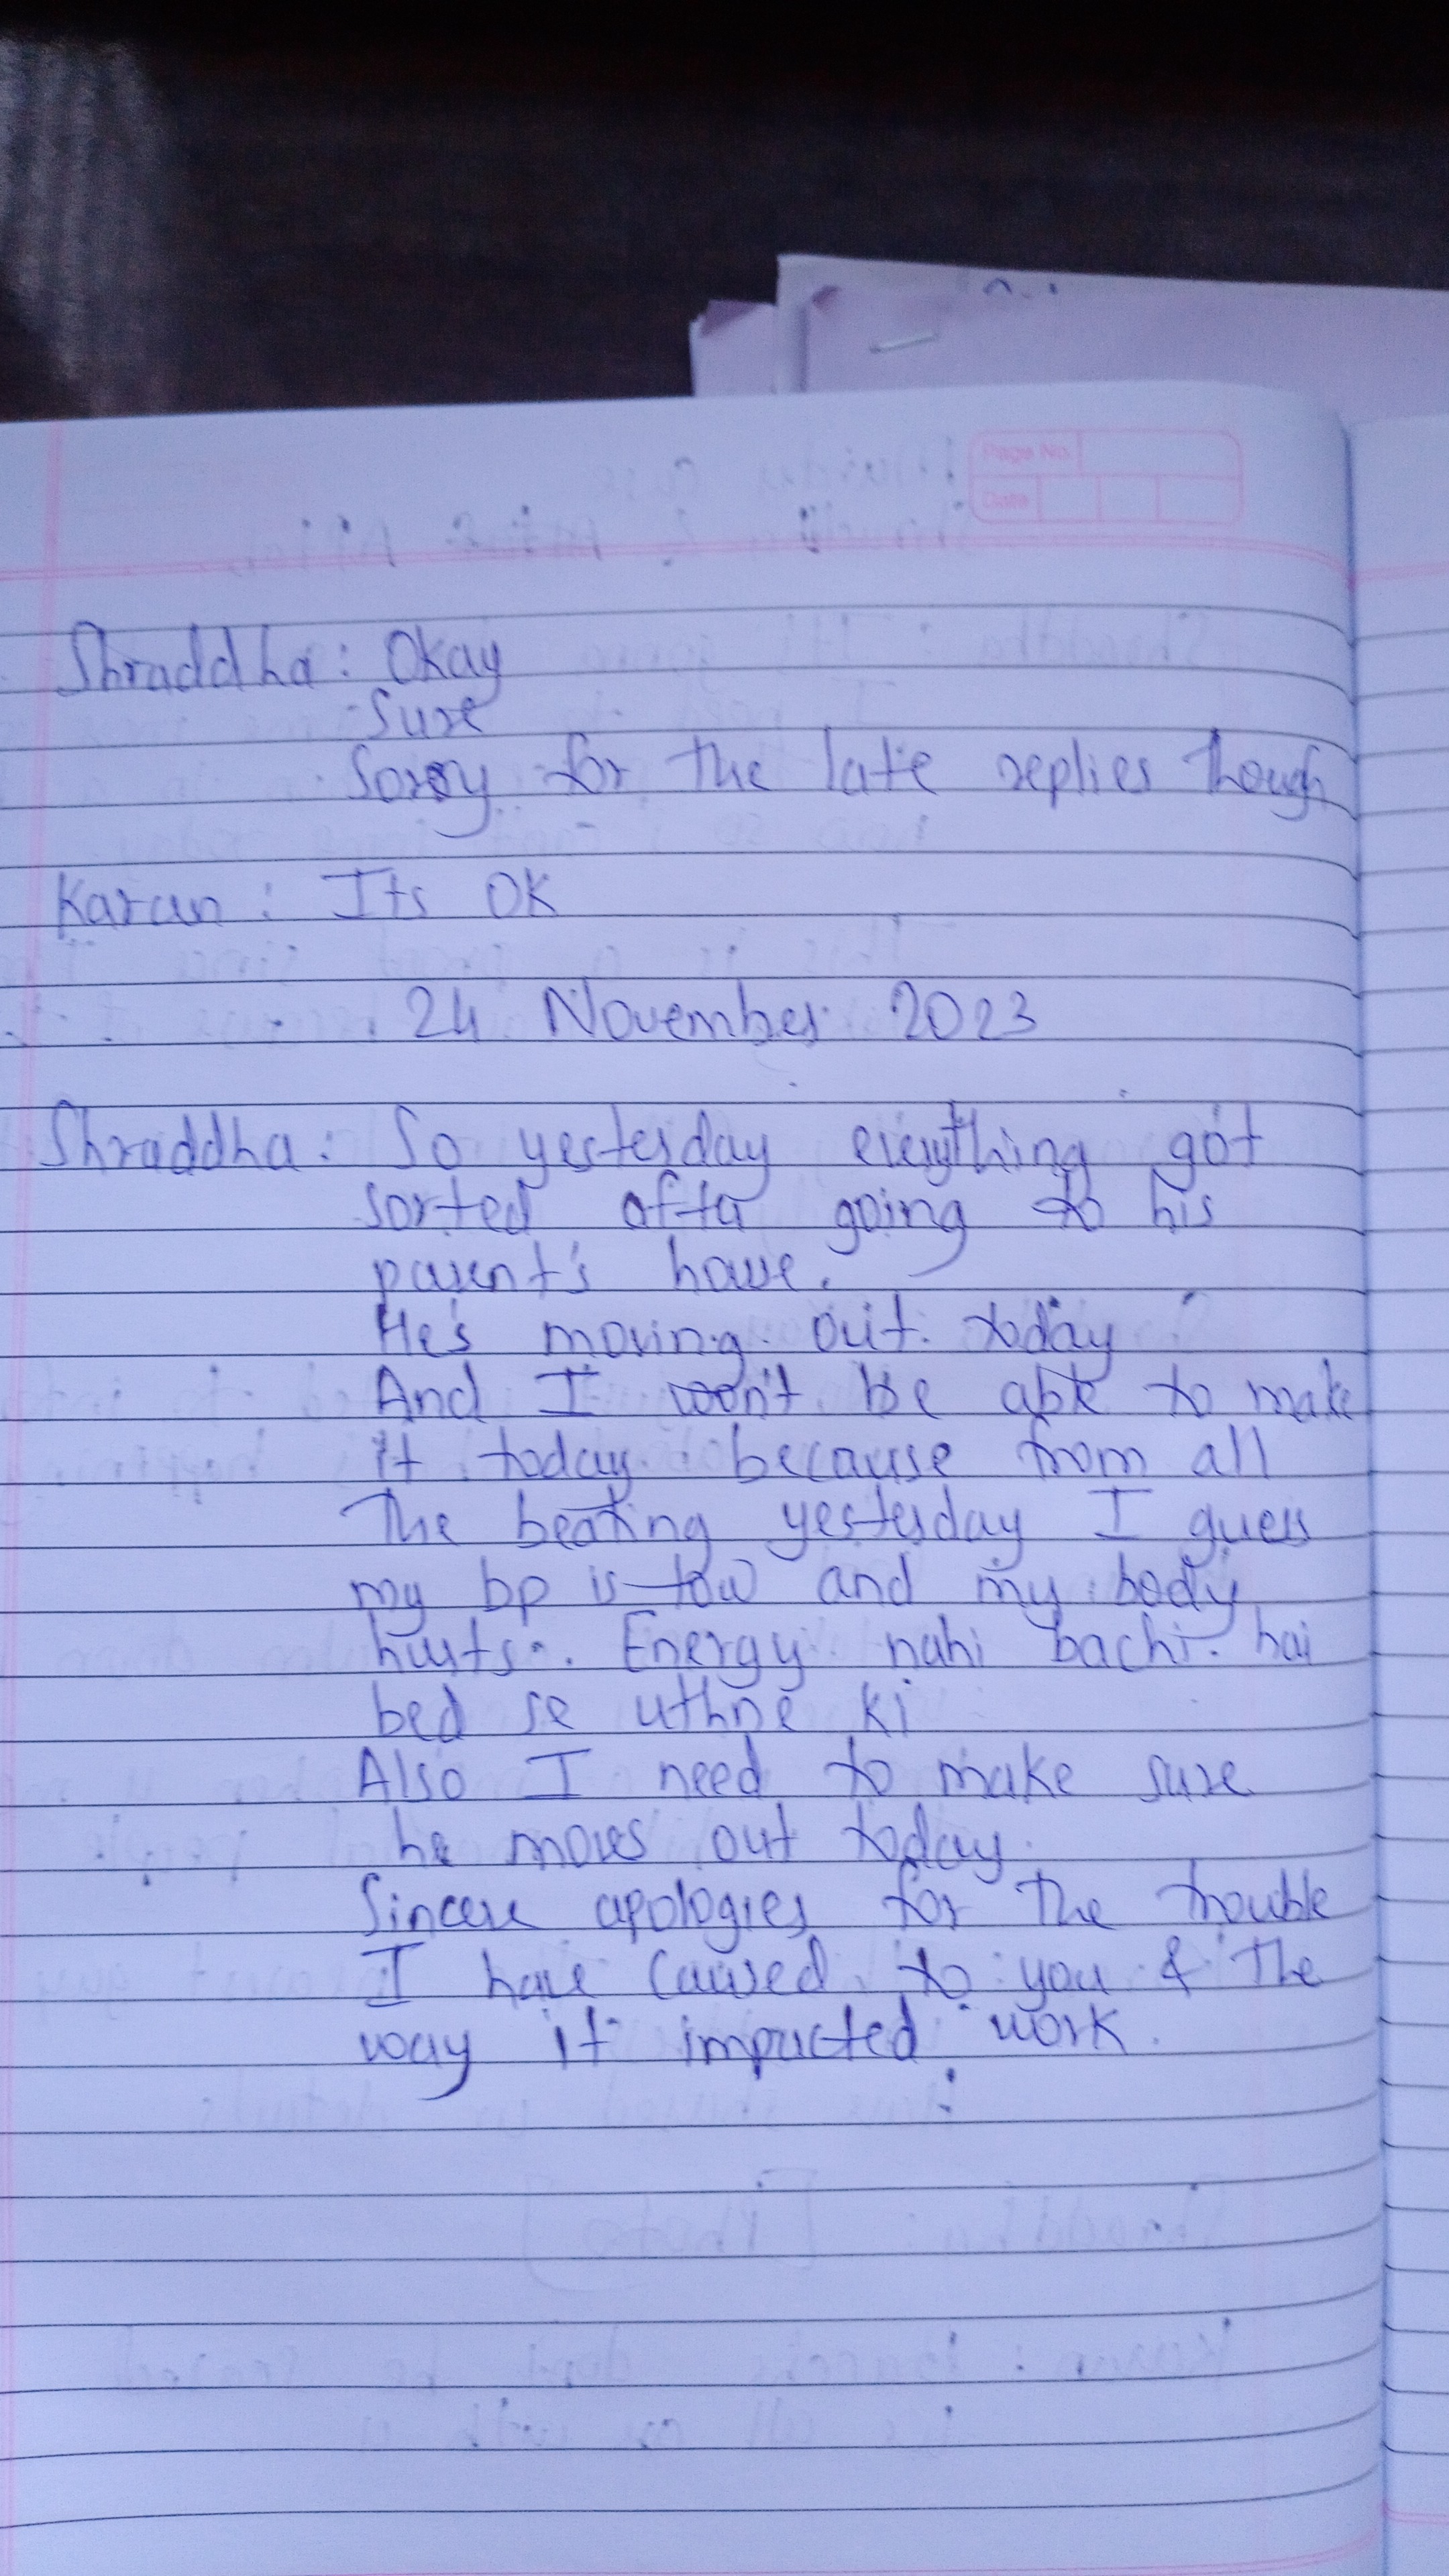 Page No.
Date
Shraddha : Okay
Sure
Sorry for the late replies though
Karan : Its OK
24 November 2023
Shraddha : So yesterday everything got
sorted after going to his
parent's house.
He's moving out today
And I won't be able to make
it today because from all
the beating yesterday I guess
my bp is low and my body
hurts. Energy nahi bachi hai
bed se uthne ki
Also I need to make sure
he moves out today.
Sincere apologies for the trouble
I have caused to you & the
way it impacted work.